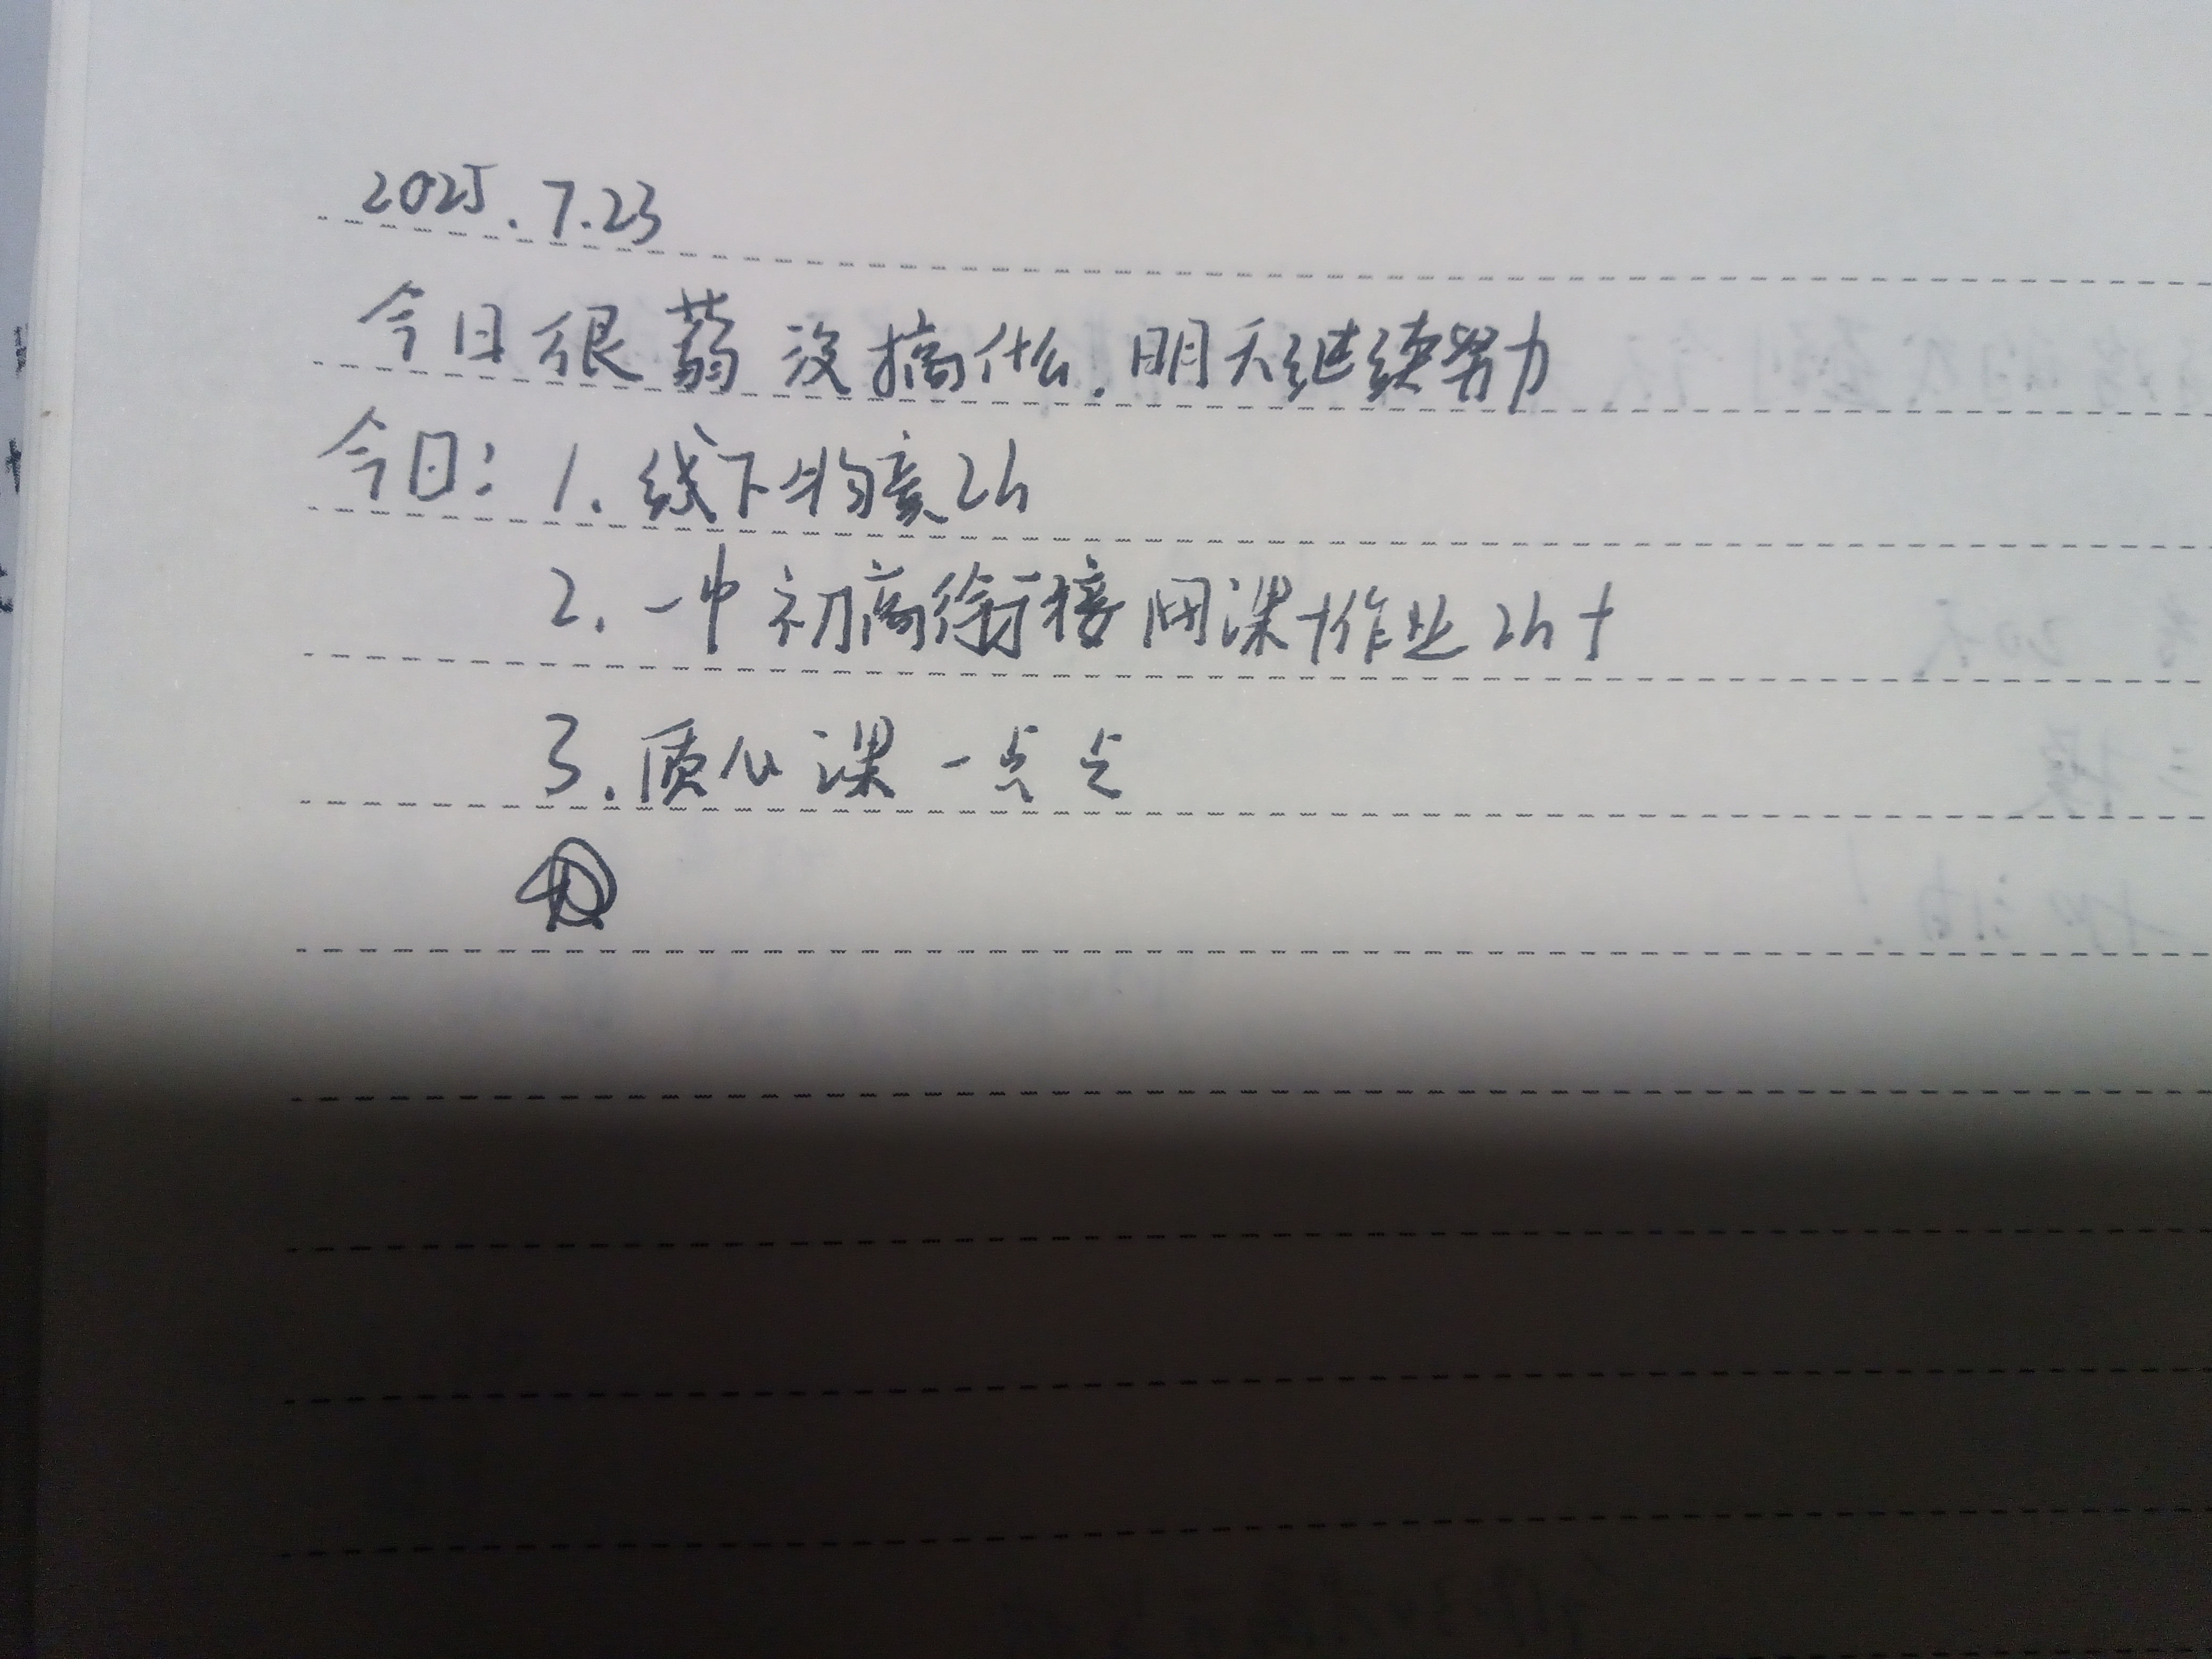 2025.7.23
今日很蒻 没搞什么.明天继续努力
今日：1.线下物竞2h
2.一中 初高衔接 网课+作业 2h+
3.质心课 一点点